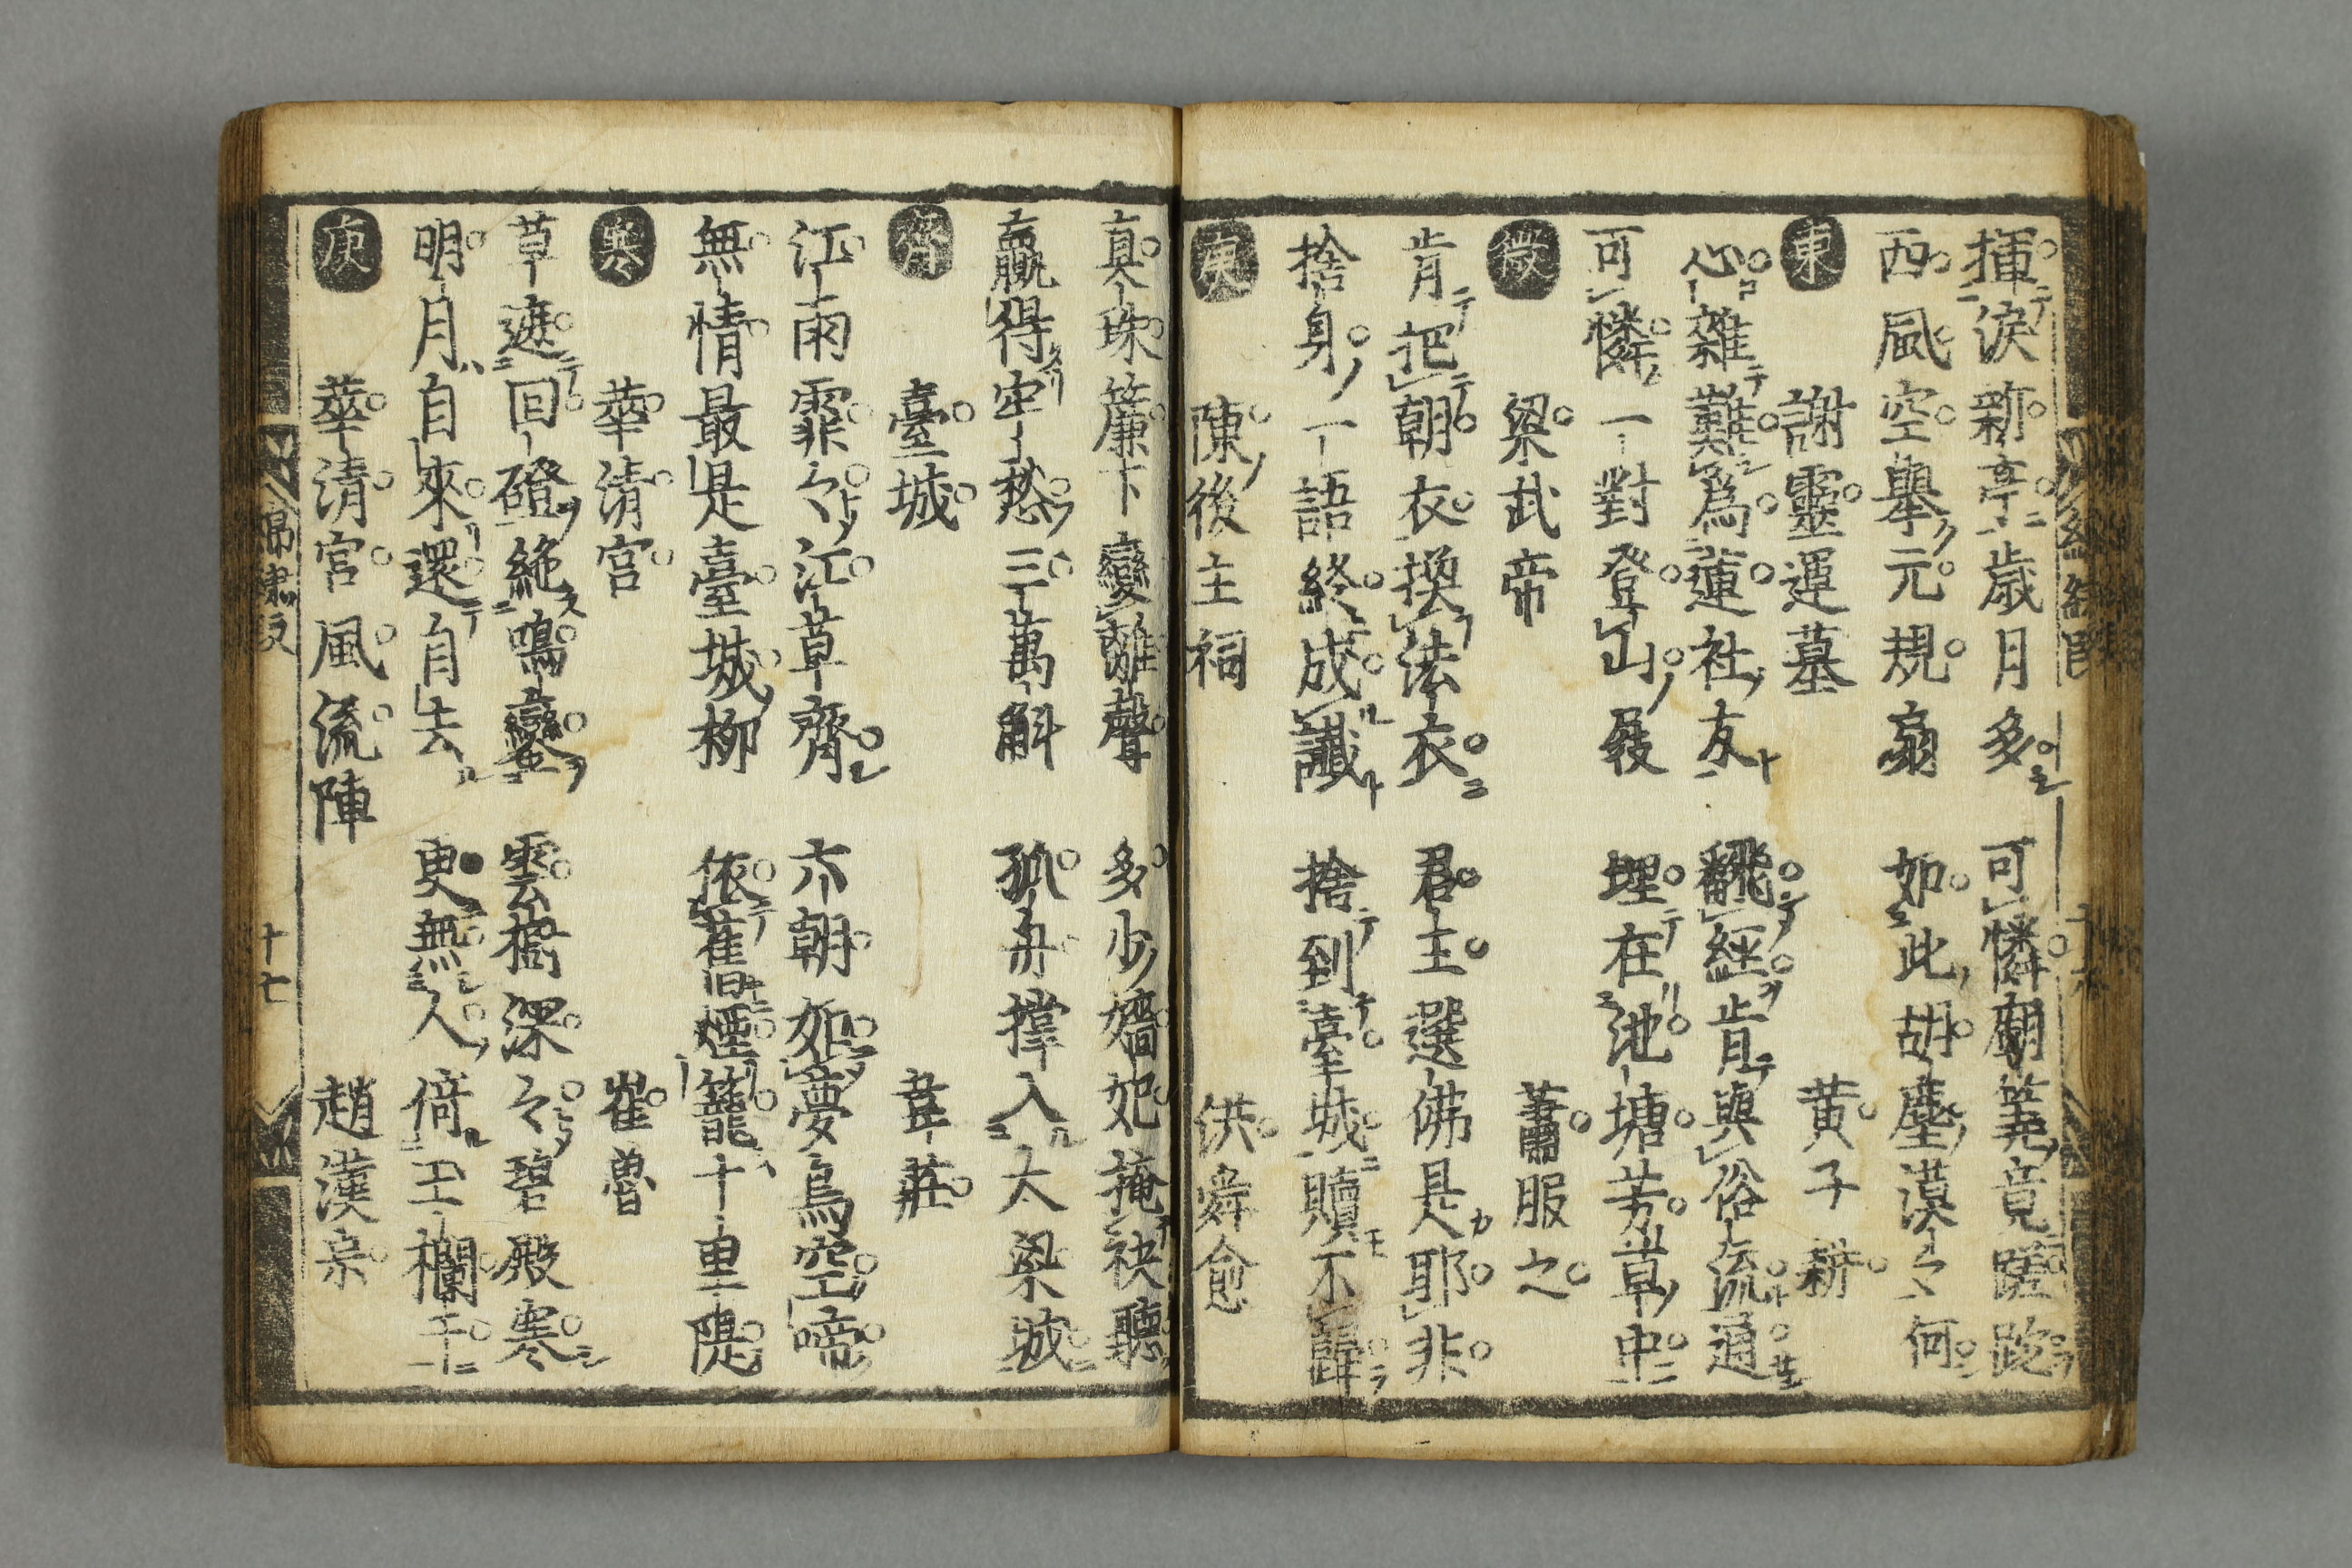 揮淚新亭歲月多　可憐廟筭竟蹉跎
西風空舉元規扇　如此胡塵漠〻何
東　謝靈運墓　黄子耕
心雜難爲蓮社友　飜經肯與俗流通
可憐一對登山屐　埋在池塘芳草中
微　梁武帝　蕭服之
肯把朝衣換法衣　君王選佛是耶非
捨身一語終成讖　捨到臺城贖不歸
庚　陳後主祠　洪舜俞
真珠簾下變離聲　多少嬙妃掩袂聽
贏得牢愁三萬斛　孤舟撑入大梁城
齊　臺城　韋莊
江雨霏〻江草齊　六朝如夢烏空啼
無情最是臺城柳　依舊煙籠十里隄
寒　華清宮　崔魯
草遮回磴絶鳴鑾　雲樹深〻碧殿寒
明月自來還自去　更無人倚玉欄干
庚　華清宮風流陣　趙漢宗
十七